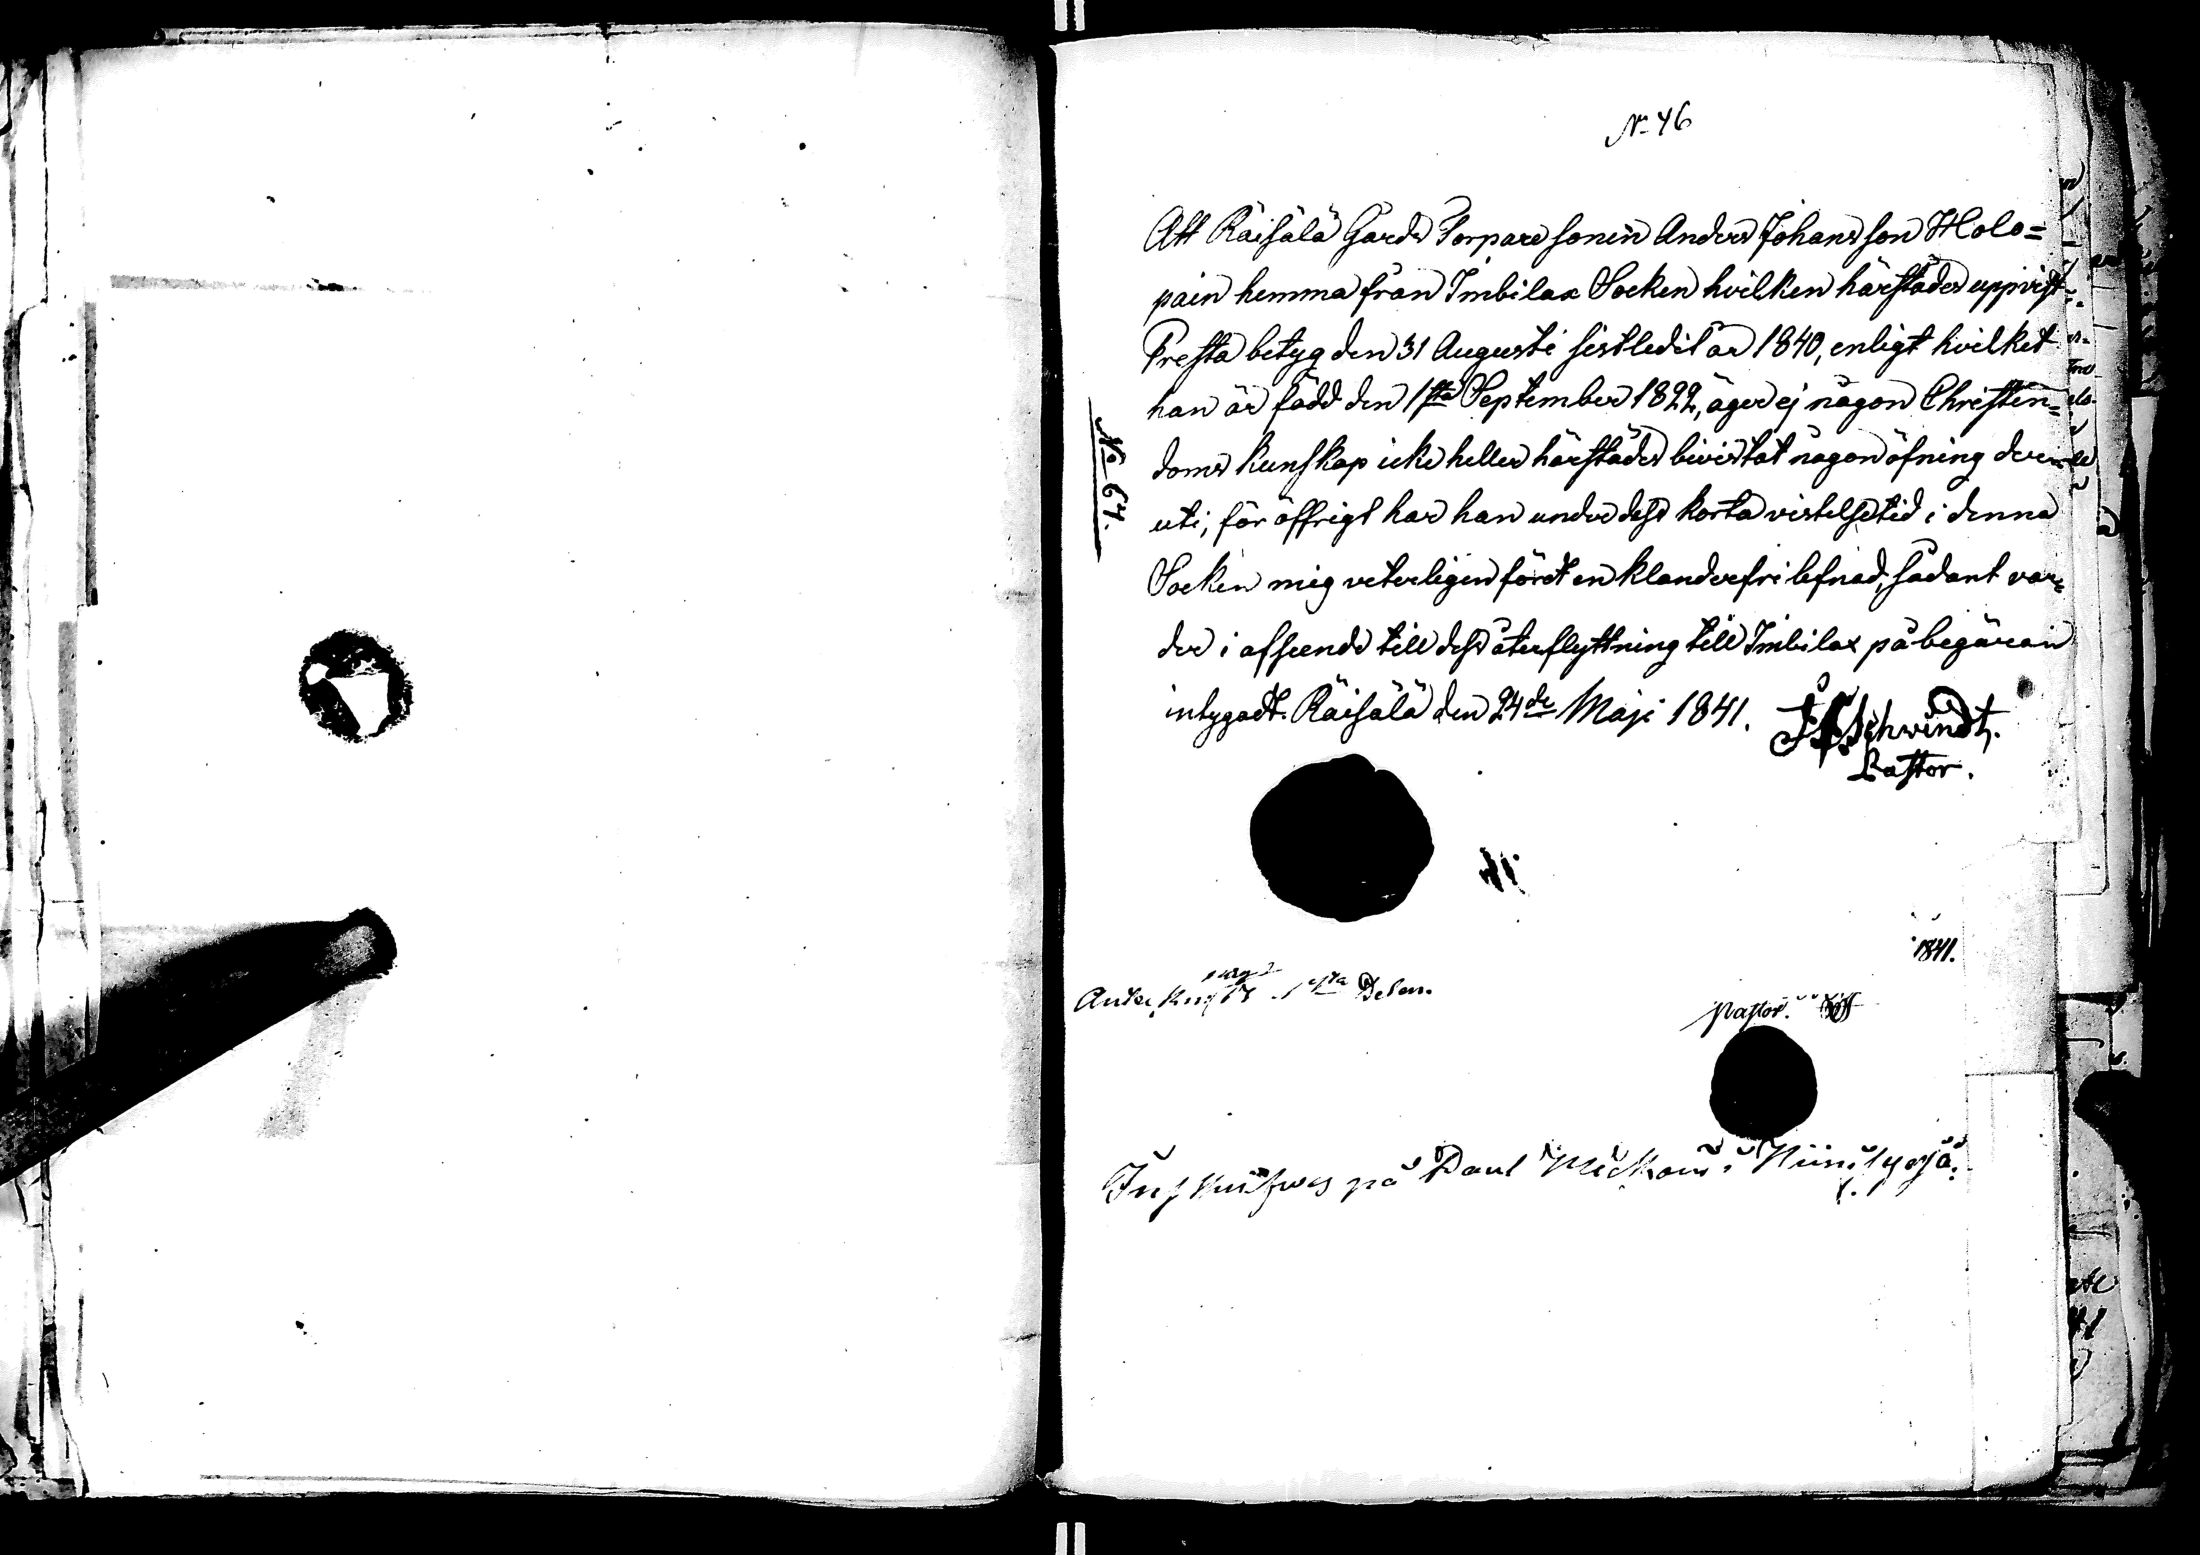 No 46
Att Räisälä Gårds Torpare sonen Anders Johansson Holo=
pain hemma från Imbilax Socken hvilken härstädes uppvist
Presta betyg den 31 Augusti sistledit år 1840, enligt hvilket
han är född den 1sta September 1822, äger ej någon Christen=
doms kunskap icke heller härstädes bivistat någon öfning der=
uti; för öffrigt har han under dess korta vistelsetid i denna
Socken mig veterligen fördt en klanderfri lefnad, sådant var=
der i afseende till dess återflyttning till Imbilax på begäran
intygadt. Räisälä den 24de Maji 1841.
Schwindt,
Pastor.
No 64.
1841.
1sta Delen.
Pastor.
på Paul